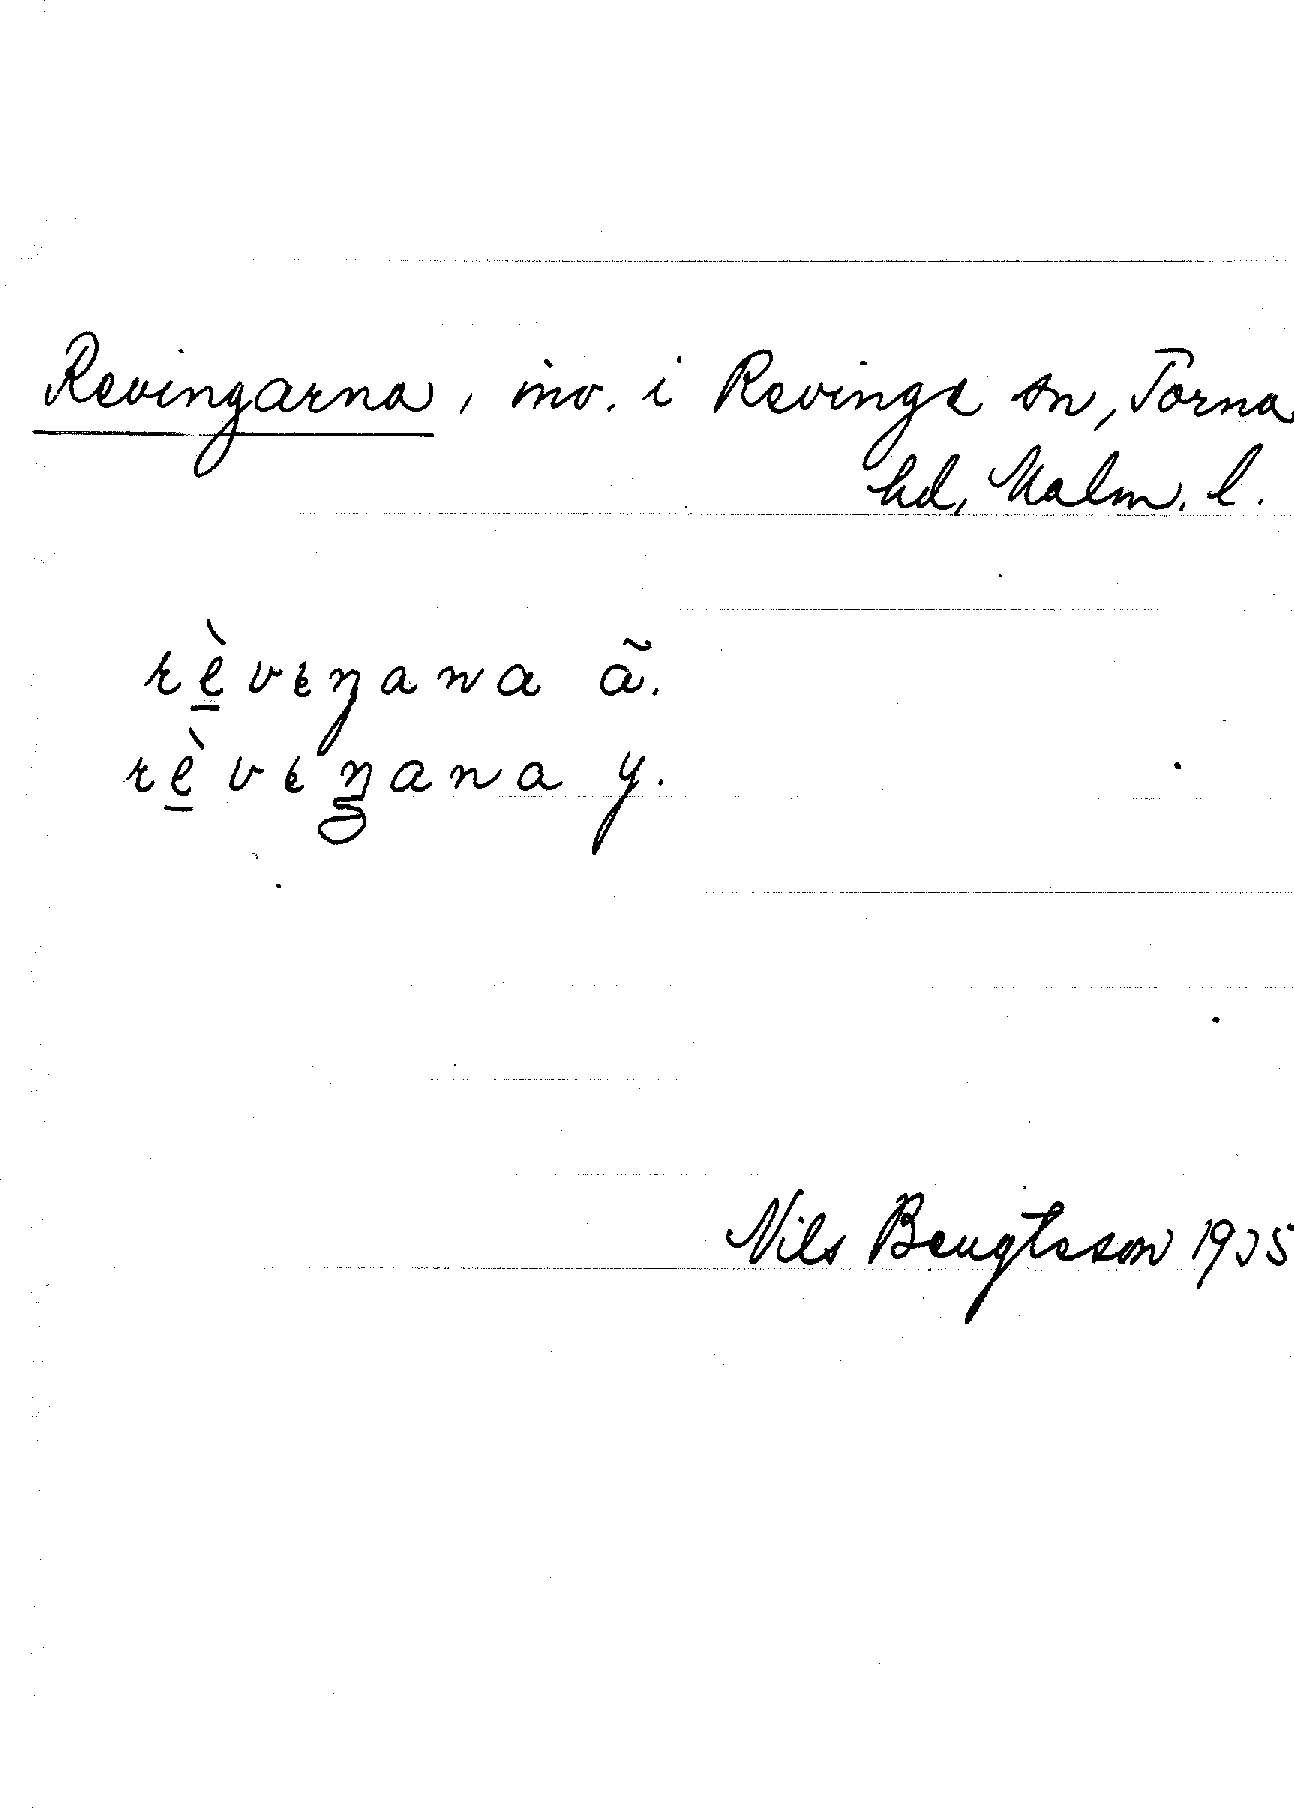 Revingarna, inv. i Revinge sn, Torna
hd, Malm. l.
rè̱vɩŋana ã.
rè̱vɩŋana y.
Nils Bengtsson 1935